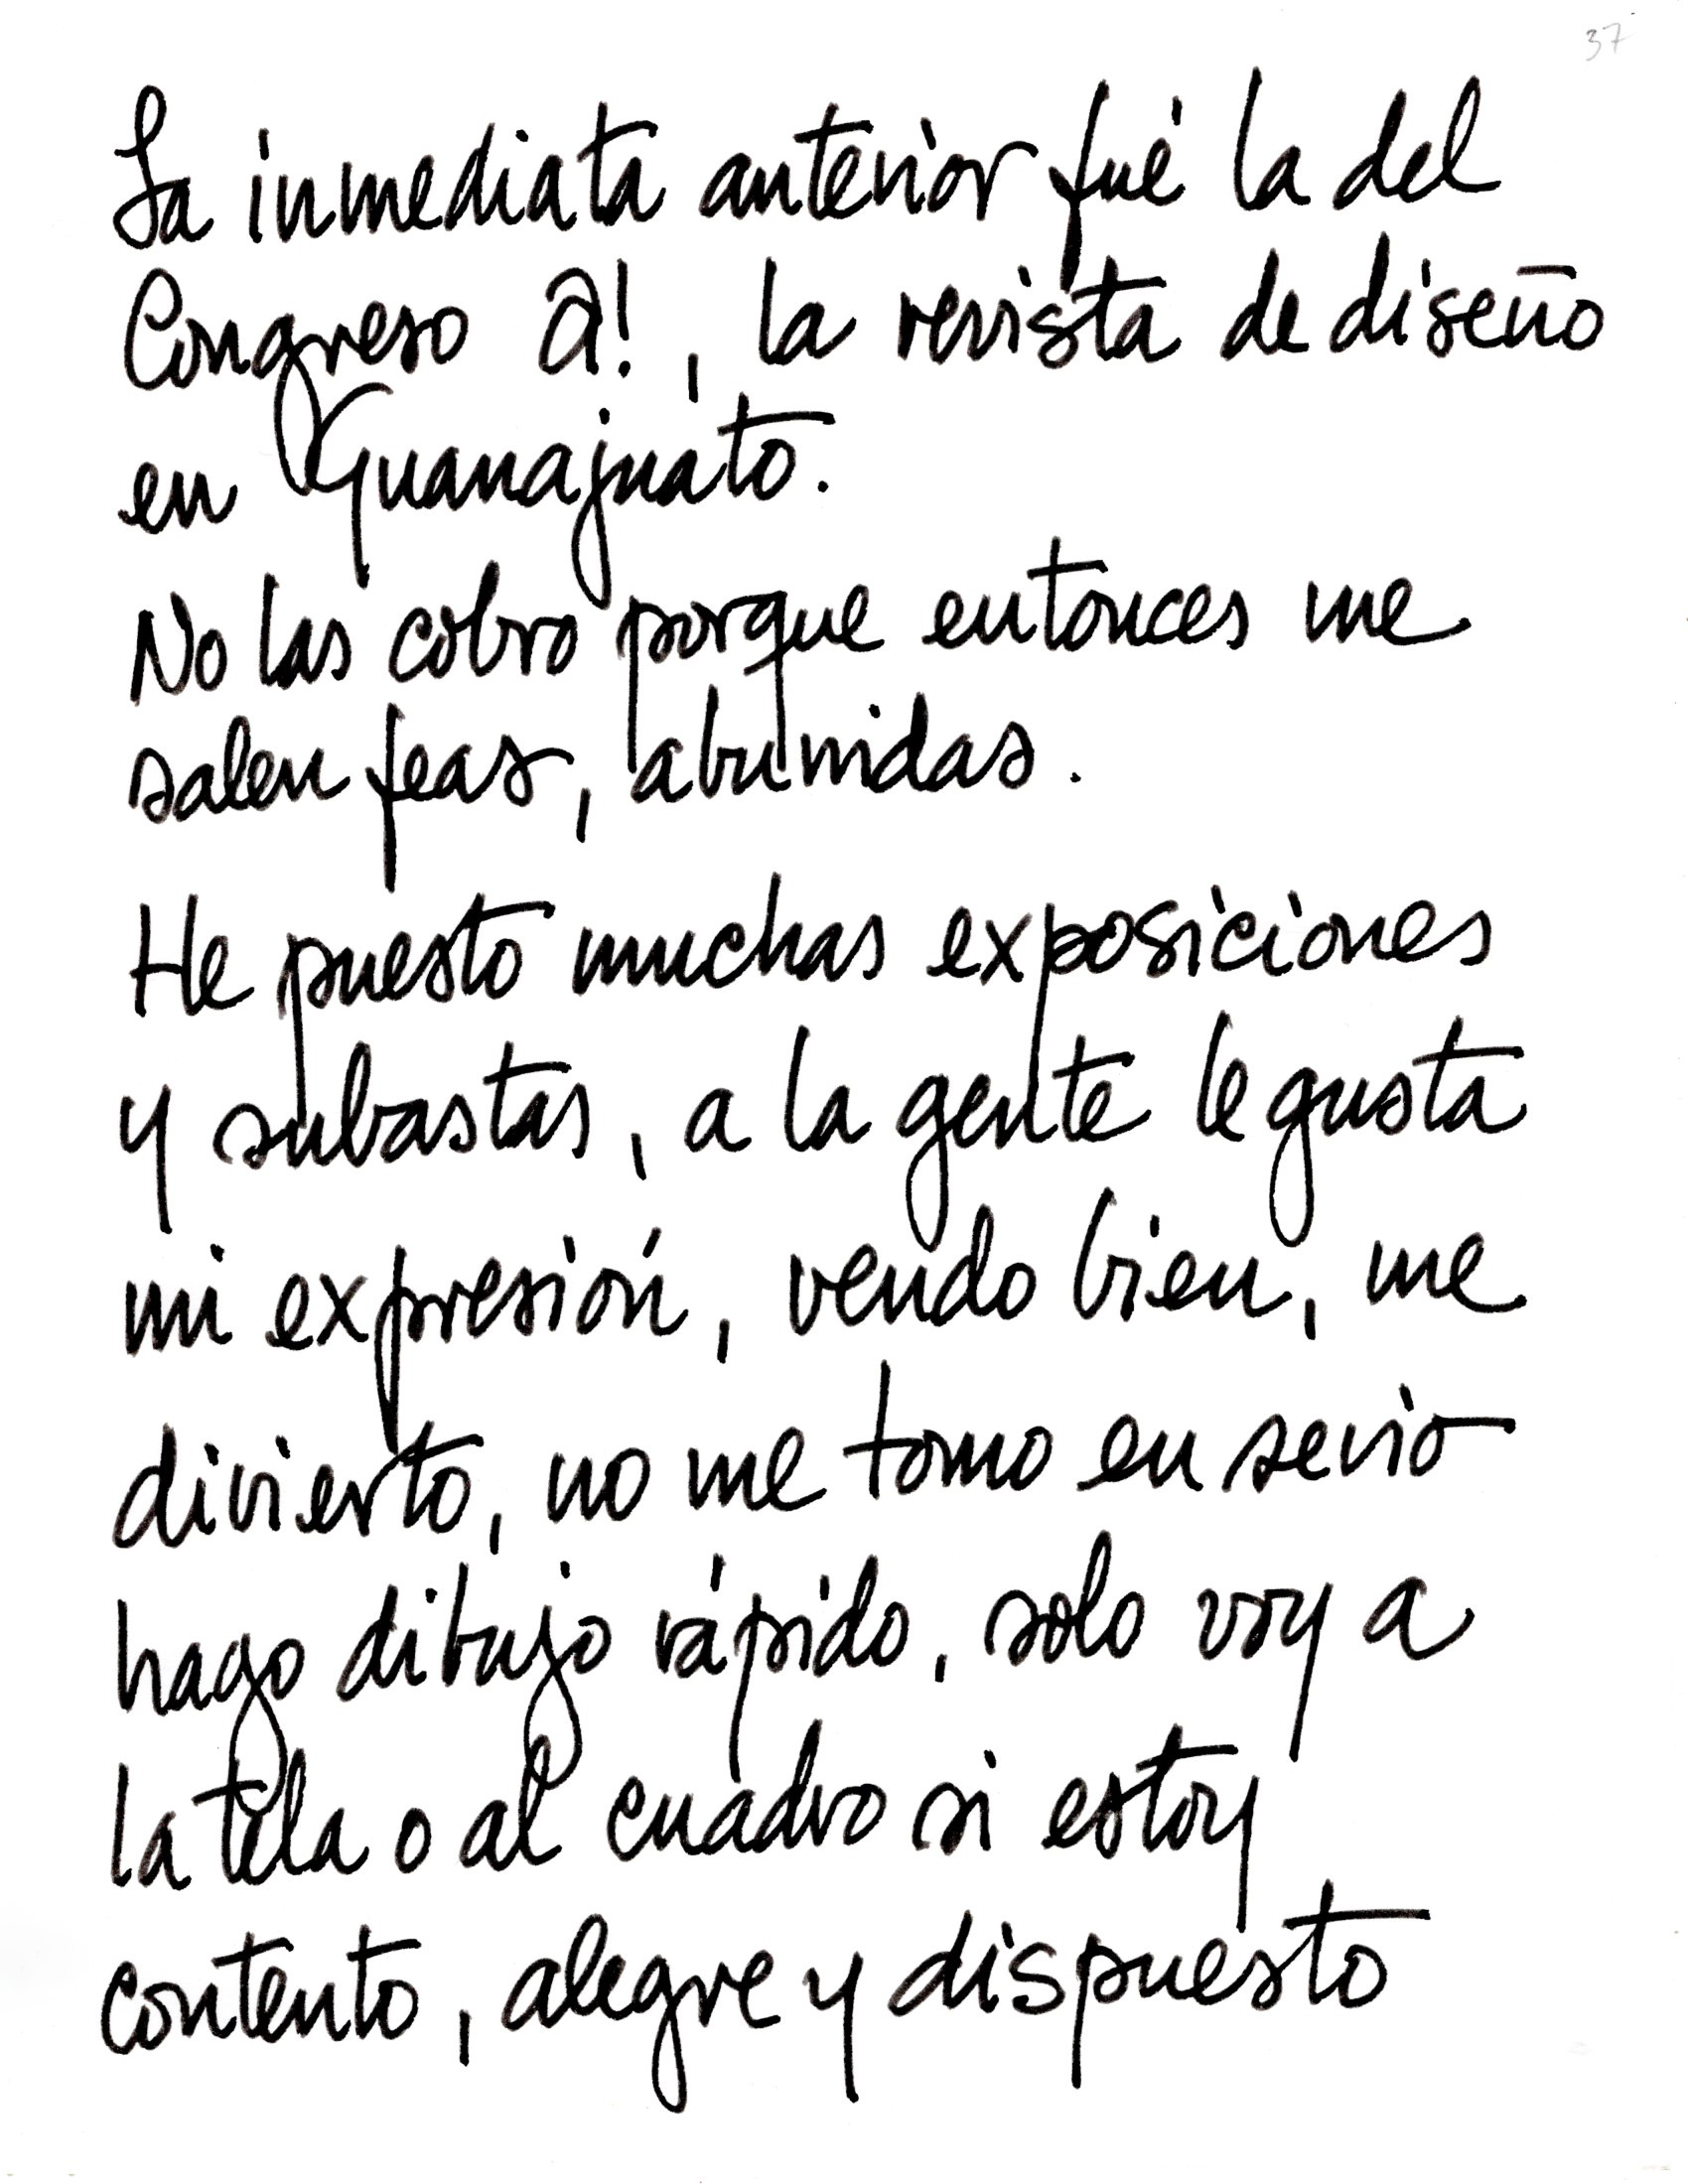 37
La inmediata anterior fué la del
Congreso a!, la revista de diseño
en Guanajuato.
No las cobro porque entonces me
salen feas, aburridas.
He puesto muchas exposiciones
y subastas, a la gente le gusta
mi expresión, vendo bien, me
divierto, no me tomo en serio
hago dibujo rápido, solo voy a
la tela o al cuadro si estoy
contento, alegre y dispuesto